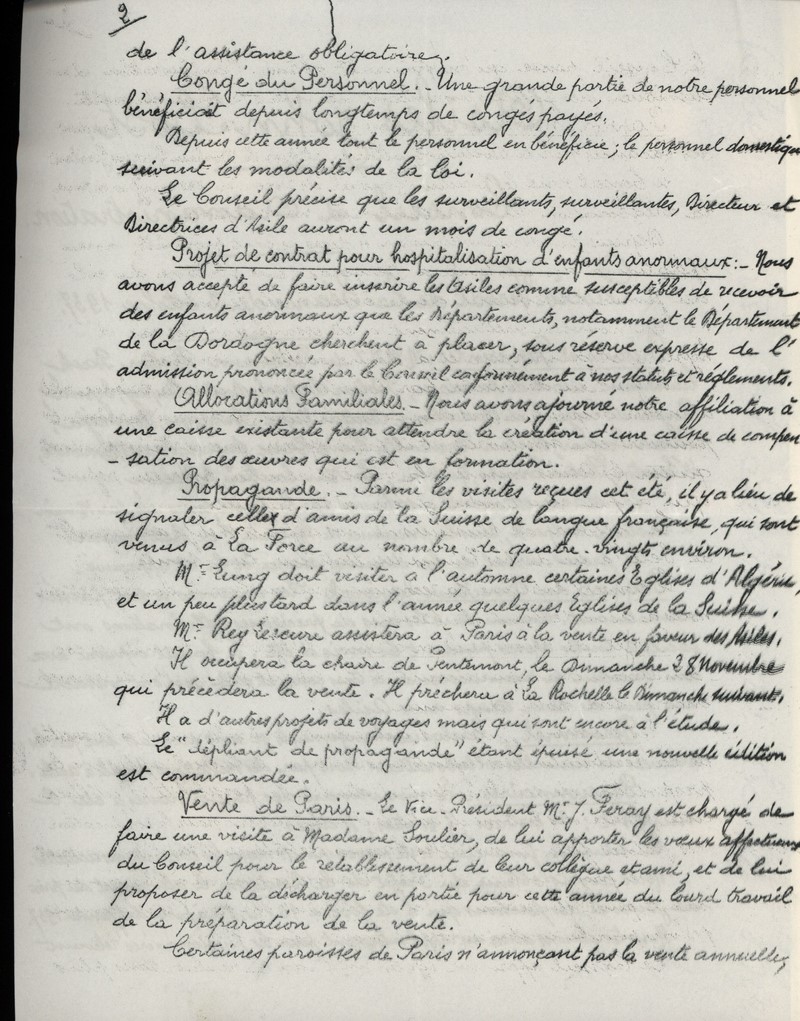 2
de l'assistance obligatoire.
Congé du Personnel. - Une grande partie de notre personnel
bénéficiait depuis longtemps de congés payés.
Depuis cette année tout le personnel en bénéficie; le personnel domestique
suivant les modalités de la loi.
Le Conseil précise que les surveillants, surveillantes, Directeur et
Directrices d'Asile auront un mois de congé.
Projet de contrat pour hospitalisation d'enfants anormaux: - Nous
avons accepté de faire inscrire les Asiles comme susceptibles de recevoir
des enfants anormaux que les Départements, notamment le Département
de la Dordogne cherchent à placer, sous réserve expresse de l'
admission prononcée par le Conseil conformément à nos statuts et réglements.
Allocations Familiales. - Nous avons ajourné notre affiliation à
une caisse existante pour attendre la création d'une caisse de compen
- sation des œuvres qui est en formation.
Propagande. - Parmi les visites reçues cet été, il y a lieu de
signaler celles d'amis de la Suisse de langue française, qui sont
venus à La Force au nombre de quatre-vingts environ.
Mr Lung doit visiter à l'automne certaines Eglises d'Algérie,
et un peu plus tard dans l'année quelques Eglises de la Suisse.
Mr Rey Lescure assistera à Paris à la vente en faveur des Asiles.
Il occupera la chaire de Pentemont, le Dimanche 28 Novembre
qui précèdera la vente. Il préchera à La Rochelle le Dimanche suivant.
Il a d'autres projets de voyages mais qui sont encore à l'étude.
Le "dépliant de propagande" étant épuisé une nouvelle édition
est commandée.
Vente de Paris. - Le Vice-Président Mr J. Feray est chargé de
faire une visite à Madame Soulier, de lui apporter les vœux affectueux
du Conseil pour le rétablissement de leur collègue et ami, et de lui
proposer de la décharger en partie pour cette année du lourd travail
de la préparation de la vente.
Certaines paroisses de Paris n'annonçant pas la vente annuelle,